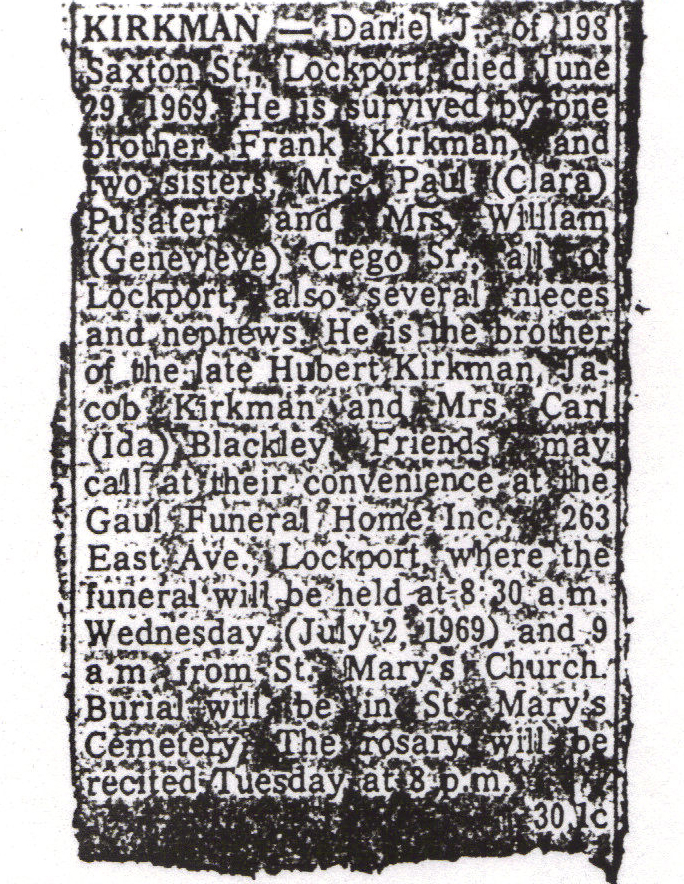 KIRKMAN — Daniel J., of 198
Saxton St., Lockport, died June
29, 1969. He is survived by one
brother, Frank Kirkman, and
two sisters, Mrs. Paul (Clara)
Pusateri and Mrs. William
(Genevieve) Crego Sr., all of
Lockport, also several nieces
and nephews. He is the brother
of the late Hubert Kirkman, Ja-
cob Kirkman and Mrs. Carl
(Ida) Blackley. Friends may
call at their convenience at the
Gaul Funeral Home Inc., 263
East Ave., Lockport, where the
funeral will be held at 8.30 a.m.
Wednesday (July 2, 1969) and 9
a.m. from St. Mary's Church.
Burial will be in St. Mary's
Cemetery. The rosary will be
recited Tuesday at 8 p.m.
30,1c